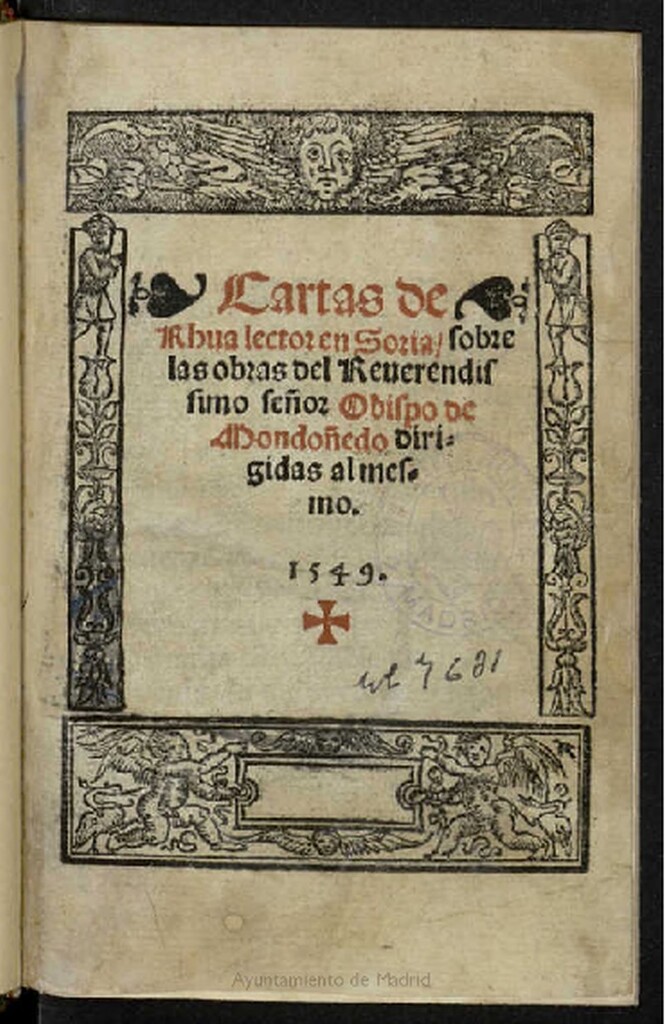 Cartas de
Rhua lector en Soria / sobre
las obras del Reuerendiſ
ſimo ſeñor Obiſpo de
Mondoñedo diri-
gidas al meſ-
mo.
1549.
MADR
7681
Ayuntamiento de Madrid